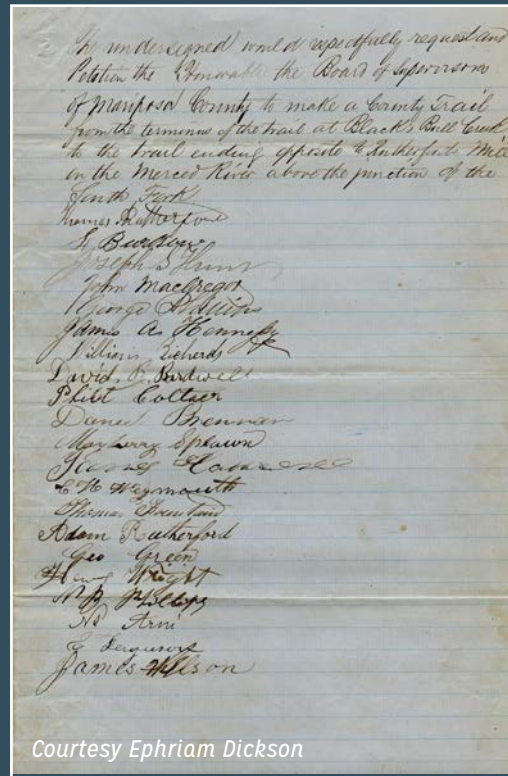 The undersigned would respectfully request and
Petition the Honorable the Board of Supervisors
of Mariposa County to make a County Trail
from the terminus of the trail at Black's Bull Creek
to the trail ending opposite to Rutherford's Mill
on the Merced River above the junction of the
South Fork
Thomas Rutherford
Joseph S
John MacGregor
George
James A Hennessy
William Richards
David Bardwell
Coltser
Daniel Brennan
Mayberry Sprawn
Weymouth
Thomas Fountain
Adam Rutherford
Geo Green
Wright
Phillips
Arni
Ferguson
James Wilson
Courtesy Ephriam Dickson